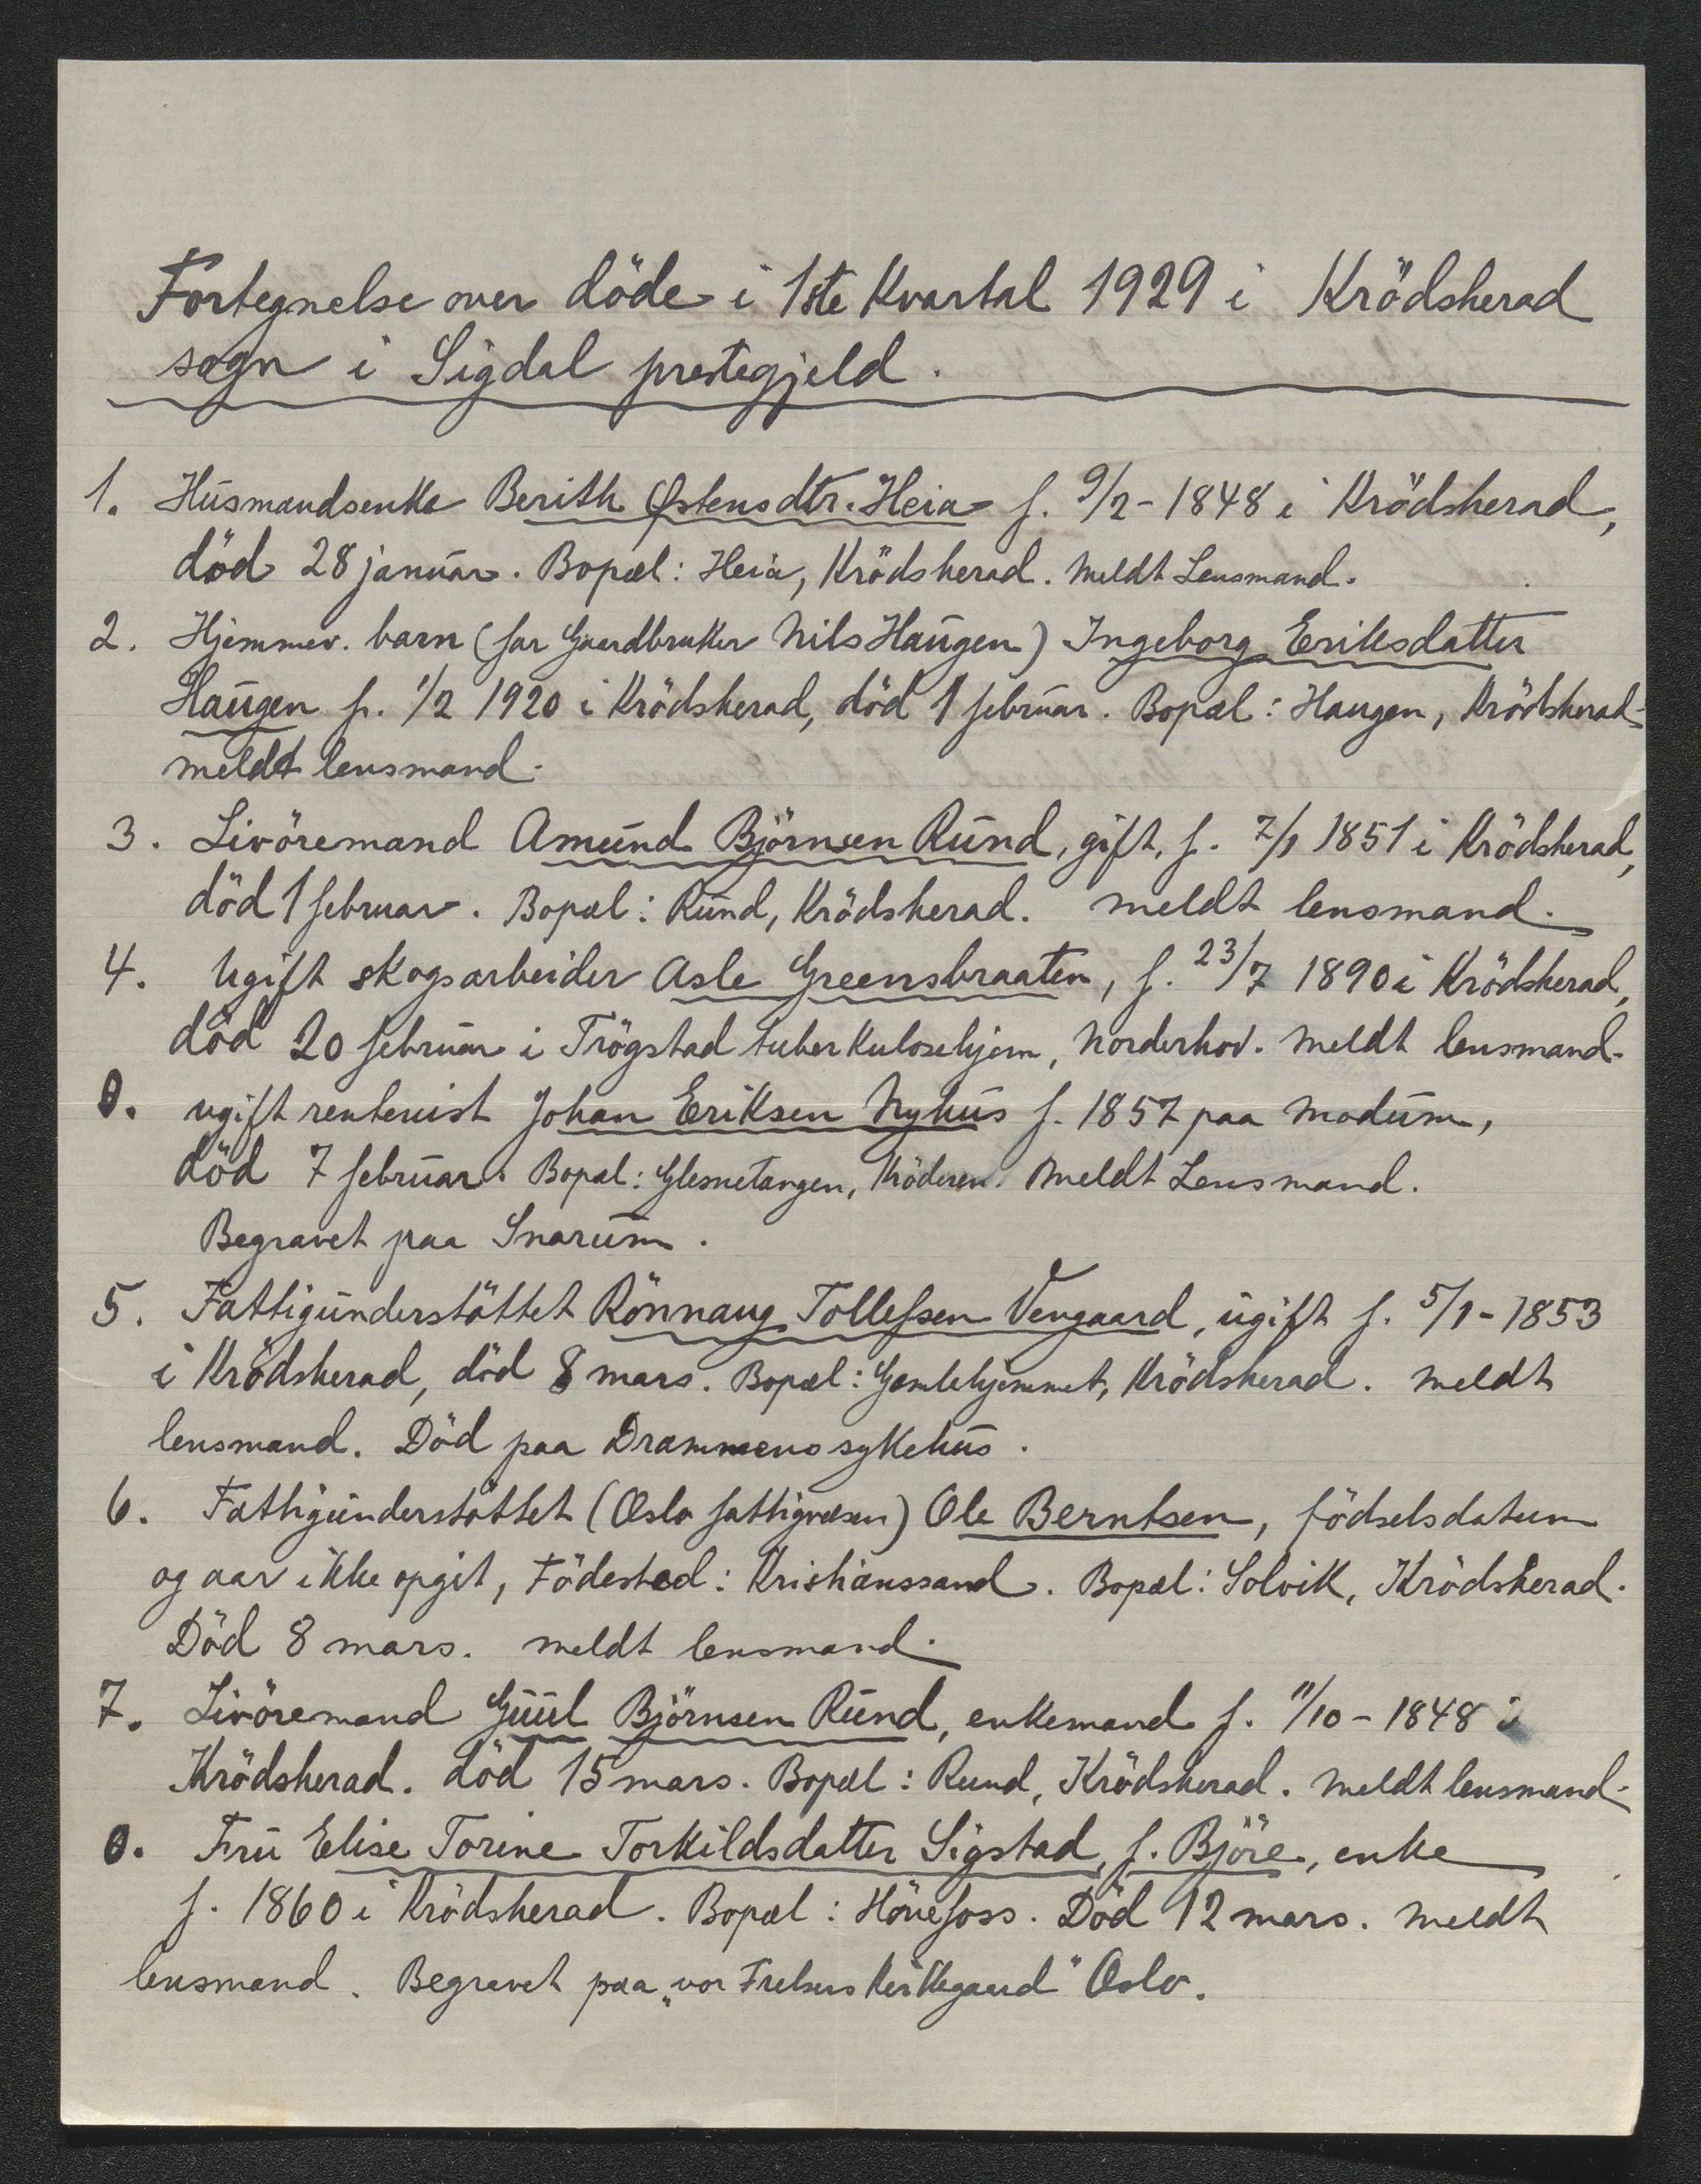 Fortegnelse over döde i 1ste Kvartal 1929 i Krödsherad
sogn i Sigdal prestegjeld.
1. Husmandsenke Berith Østensdtr. Heia f. 9/2 - 1848 i Krödsherad,
död 28 januar. Bopæl: Heia, Krödsherad. Meldt Lensmand.
2. Hjemmev. barn (far Gaardbruker Nils Haugen) Ingeborg Eriksdatter
Haugen f. 1/2 1920 i Krödsherad, död 1 februar. Bopæl: Haugen, Krödsherad-
meldt lensmand.
3. Livöremand Amund Björnsen Rund, gift, f. 7/1 1851 i Krödsherad,
död 1 februar. Bopæl: Rund, Krödsherad. Meldt lensmand.
4. Ugift skogsarbeider Asle Greensbraaten, f. 23/7 1890 i Krödsherad,
död 20 februar i Trögstad tuberkulosehjem, Norderhov. Meldt lensmand.
0. ugift rentenist Johan Eriksen Nyhus f. 1857 paa Modum,
död 7 februar. Bopæl: Glesnetangen, Kröderen. Meldt Lensmand.
Begravet paa Snarum.
5. Fattigunderstöttet Rönnaug Tollefsen Vengaard, ugift f. 5/1 - 1853
i Krödsherad, död 8 mars. Bopæl: Gamlehjemmet, Krödsherad. Meldt
lensmand. Död paa Drammens sykehus.
6. Fattigunderstöttet (Oslo fattigvæsen) Ole Berntsen, födselsdatum
og aar ikke opgit, Födested: Kristianssand. Bopæl: Solvik, Krödsherad.
Död 8 mars. Meldt lensmand.
7. Livöremand Guul Björnsen Rund, enkemand f. 11/10 - 1848 i
Krödsherad. död 15 mars. Bopæl: Rund, Krödsherad. Meldt lensmand.
0. Fru Elise Torine Torkildsdatter Sigstad, f. Björe, enke
f. 1860 i Krödsherad. Bopæl: Hönefoss. Död 12 mars. Meldt
lensmand. Begravet paa „vor Frelsers Kirkegaard" Oslo.